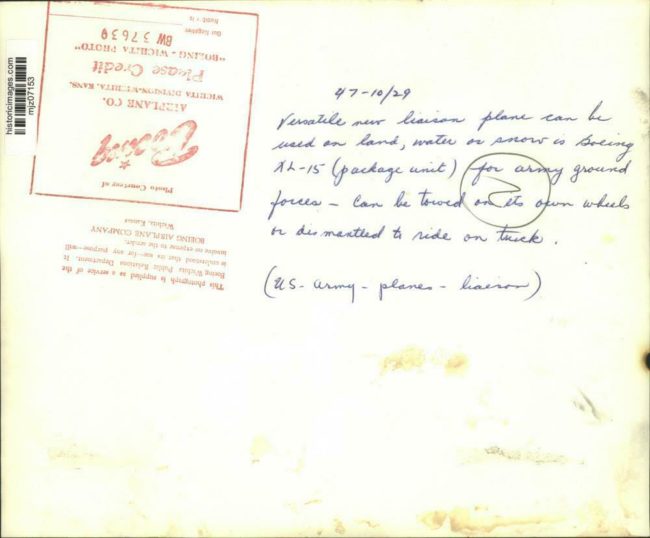 47-10/29
Versatile new liaison plane can be
used on land, water or snow is Boeing
XL-15 (package unit) for army ground
forces - Can be towed on its own wheels
or dismantled to ride on truck.
(US - army - planes - liaison)
2
historicimages.com
mjz07153
Photo Courtesy of
Boeing
AIRPLANE CO.
WICHITA DIVISION-WICHITA, KANS.
Please Credit
"BOEING - WICHITA PHOTO"
BW 37639
Our Negative
This photograph is supplied as a service of the
Boeing Wichita Public Relations Department. It
is understood that its use—for any purpose—will
involve no expense to the sender.
BOEING AIRPLANE COMPANY
Wichita, Kansas